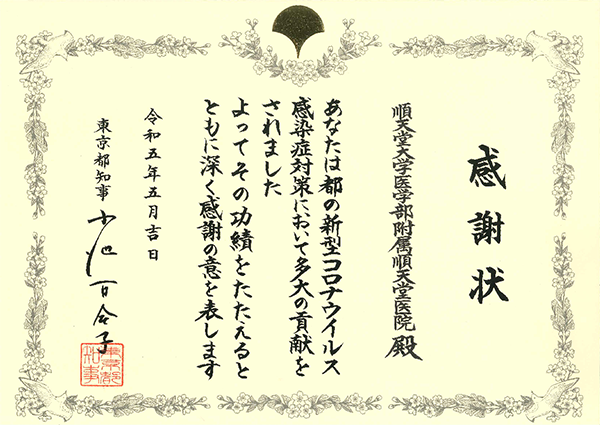 感謝状
順天堂大学医学部附属順天堂医院 殿
あなたは都の新型コロナウイルス
感染症対策において多大の貢献を
されました
よってその功績をたたえると
ともに深く感謝の意を表します
令和五年五月吉日
東京都知事 小池百合子
東京都
知事